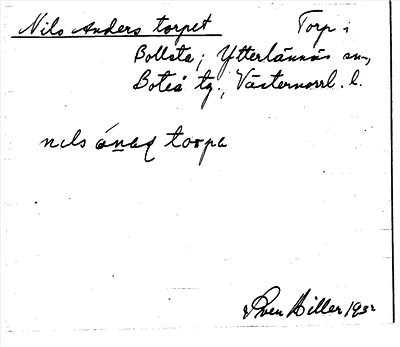 Nils Anders torpet Torp i
Bollsta, Ytterlännäs sn,
Boteå tg., Västernorrl. l.
nils ánaʂ torpa
Sven Hiller 1932